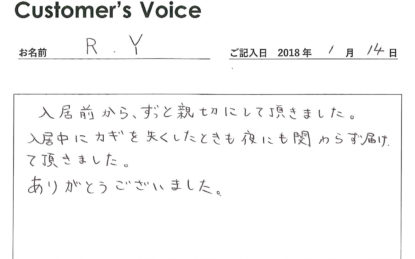 Customer's Voice
お名前 R.Y ご記入日 2018年 1月 14日
入居前から、ずっと親切にして頂きました。
入居中にカギを失くしたときも夜にも関わらず届け
て頂きました。
ありがとうございました。